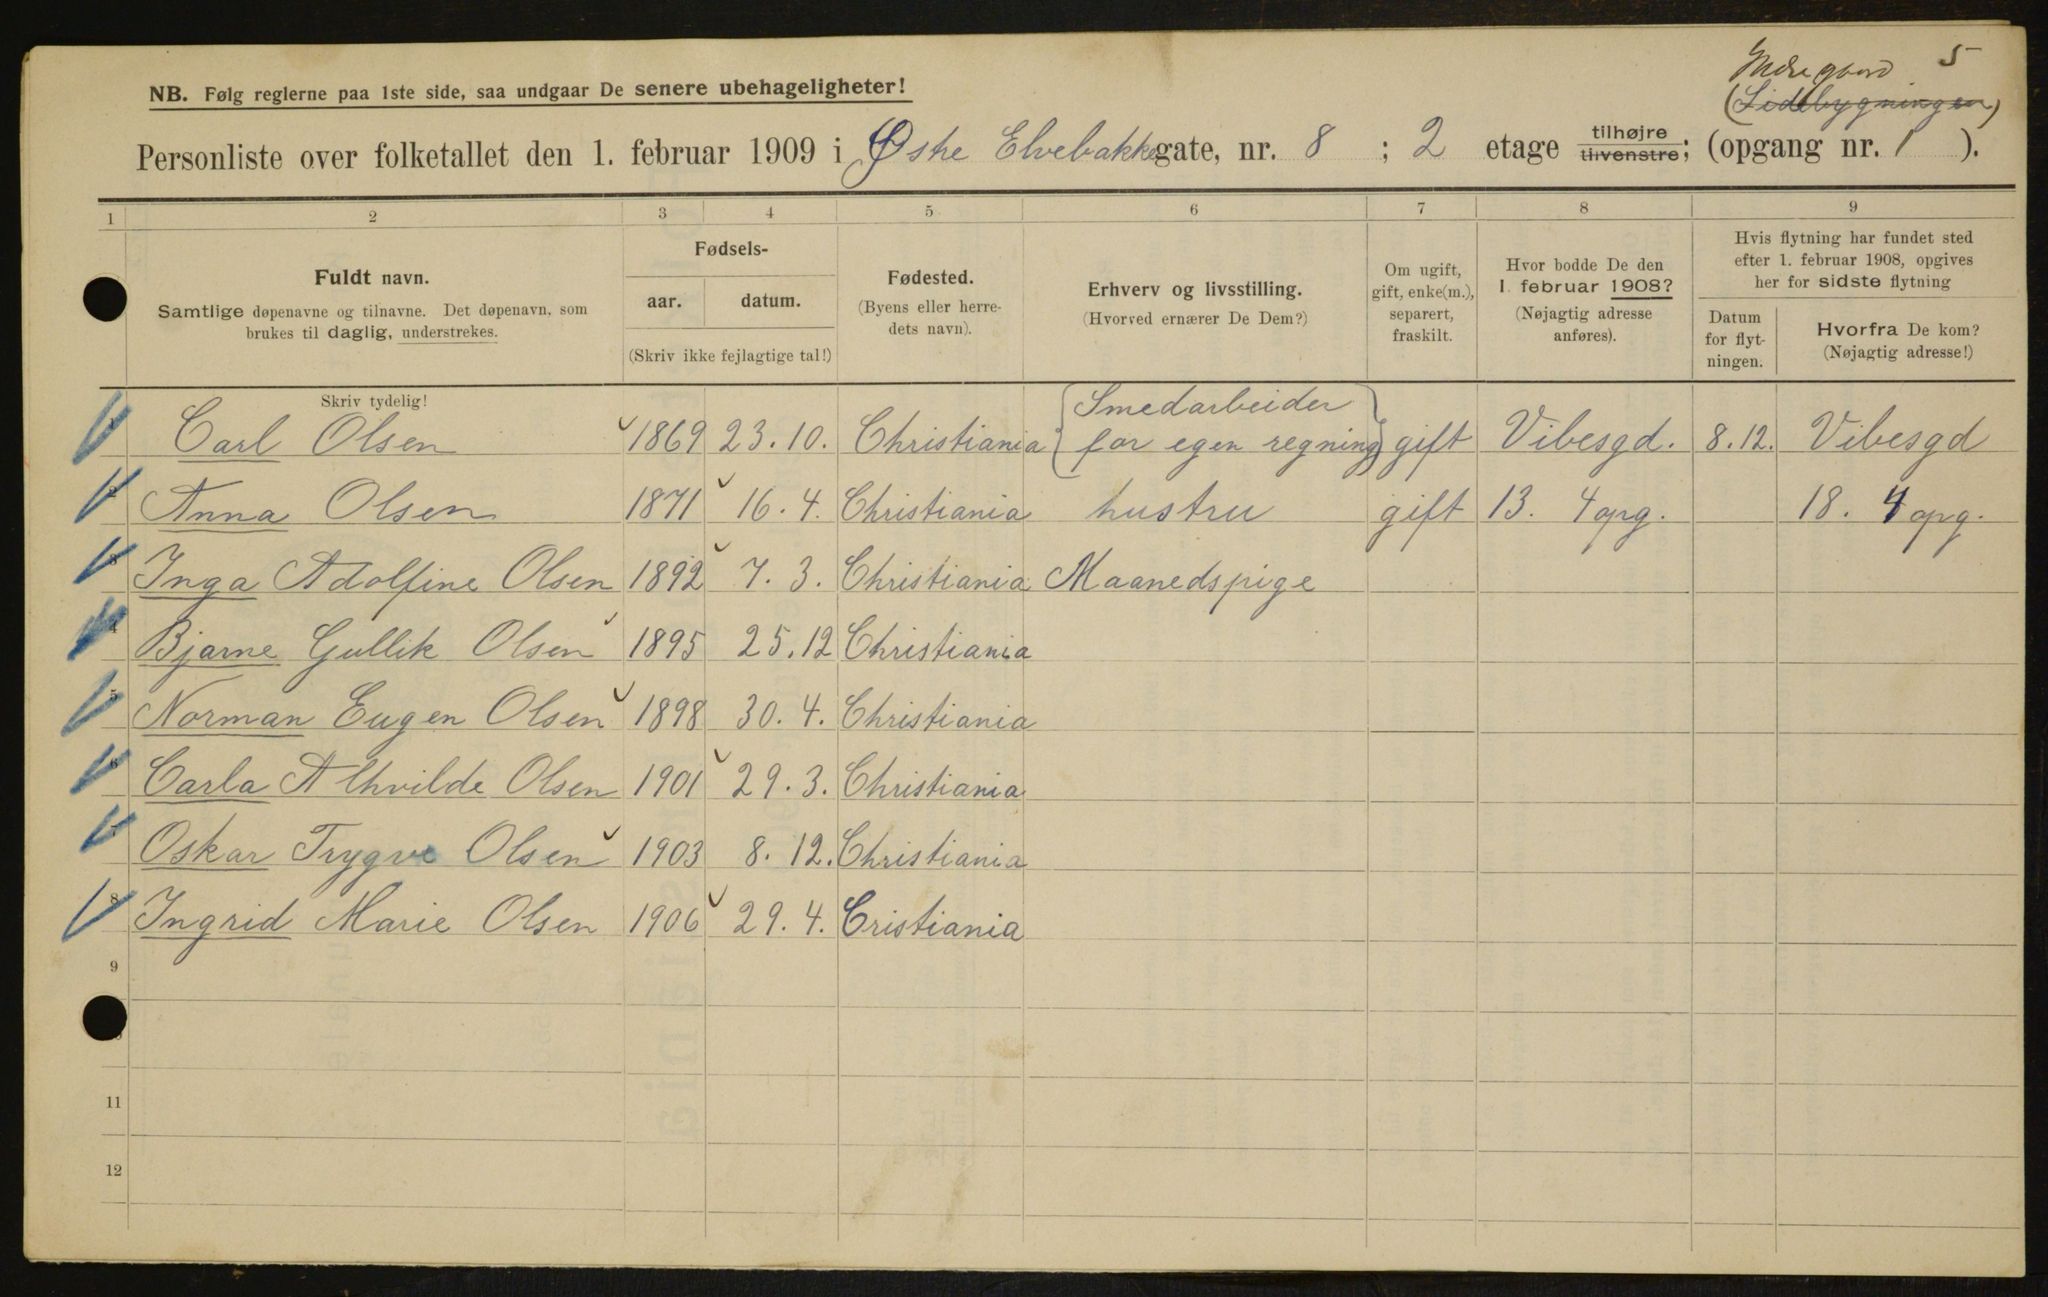 5
Indre gaard
(Sidebygningen)
NB. Følg reglerne paa 1ste side, saa undgaar De senere ubehageligheter!
Personliste over folketallet den 1. februar 1909 i Østre Elvebakkegate, nr. 8 ; 2 etage tilhøjre tilvenstre; (opgang nr. 1 ).
1 2 3 4 5 6 7 8 9
Fuldt navn.
Samtlige døpenavne og tilnavne. Det døpenavn, som
brukes til daglig, understrekes.
Fødsels-
aar. datum.
(Skriv ikke fejlagtige tal!)
Fødested.
(Byens eller herre-
dets navn).
Erhverv og livsstilling.
(Hvorved ernærer De Dem?)
Om ugift,
gift, enke(m.),
separert,
fraskilt.
Hvor bodde De den
1. februar 1908?
(Nøjagtig adresse
anføres).
Hvis flytning har fundet sted
efter 1. februar 1908, opgives
her for sidste flytning
Datum
for flyt-
ningen.
Hvorfra De kom?
(Nøjagtig adresse!)
Skriv tydelig!
1 Carl Olsen 1869 23.10. Christiania { Smedarbeider
for egen regning } gift Vibesgd. 8.12. Vibesgd
2 Anna Olsen 1871 16.4. Christiania hustru gift 13. 4 opg. 18. 4 opg.
3 Inga Adolfine Olsen 1892 7.3. Christiania Maanedspige
4 Bjarne Gullik Olsen 1895 25.12 Christiania
5 Norman Eugen Olsen 1898 30.4. Christiania
6 Carla Alhvilde Olsen 1901 29.3. Christiania
7 Oskar Trygve Olsen 1903 8.12. Christiania
8 Ingrid Marie Olsen 1906 29.4. Cristiania
9
11
12